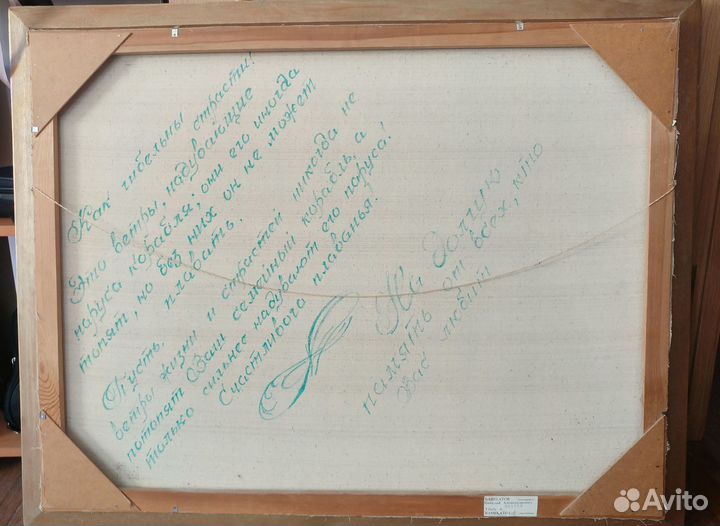 Как гибельны страсти!
Это ветры, надувающие
паруса корабля; они его иногда
топят, но без них он не может
плавать.
Пусть,
ветры жизни и страстей никогда не
потопят Ваш семейный корабль, а
только сильнее надувают его паруса!
Счастливого плаванья!
На Долгую
память от всех, кто
Вас любит
Avito